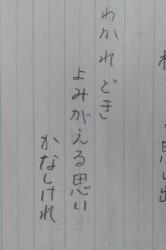 わかれどき
よみがえる思い
かなしけれ